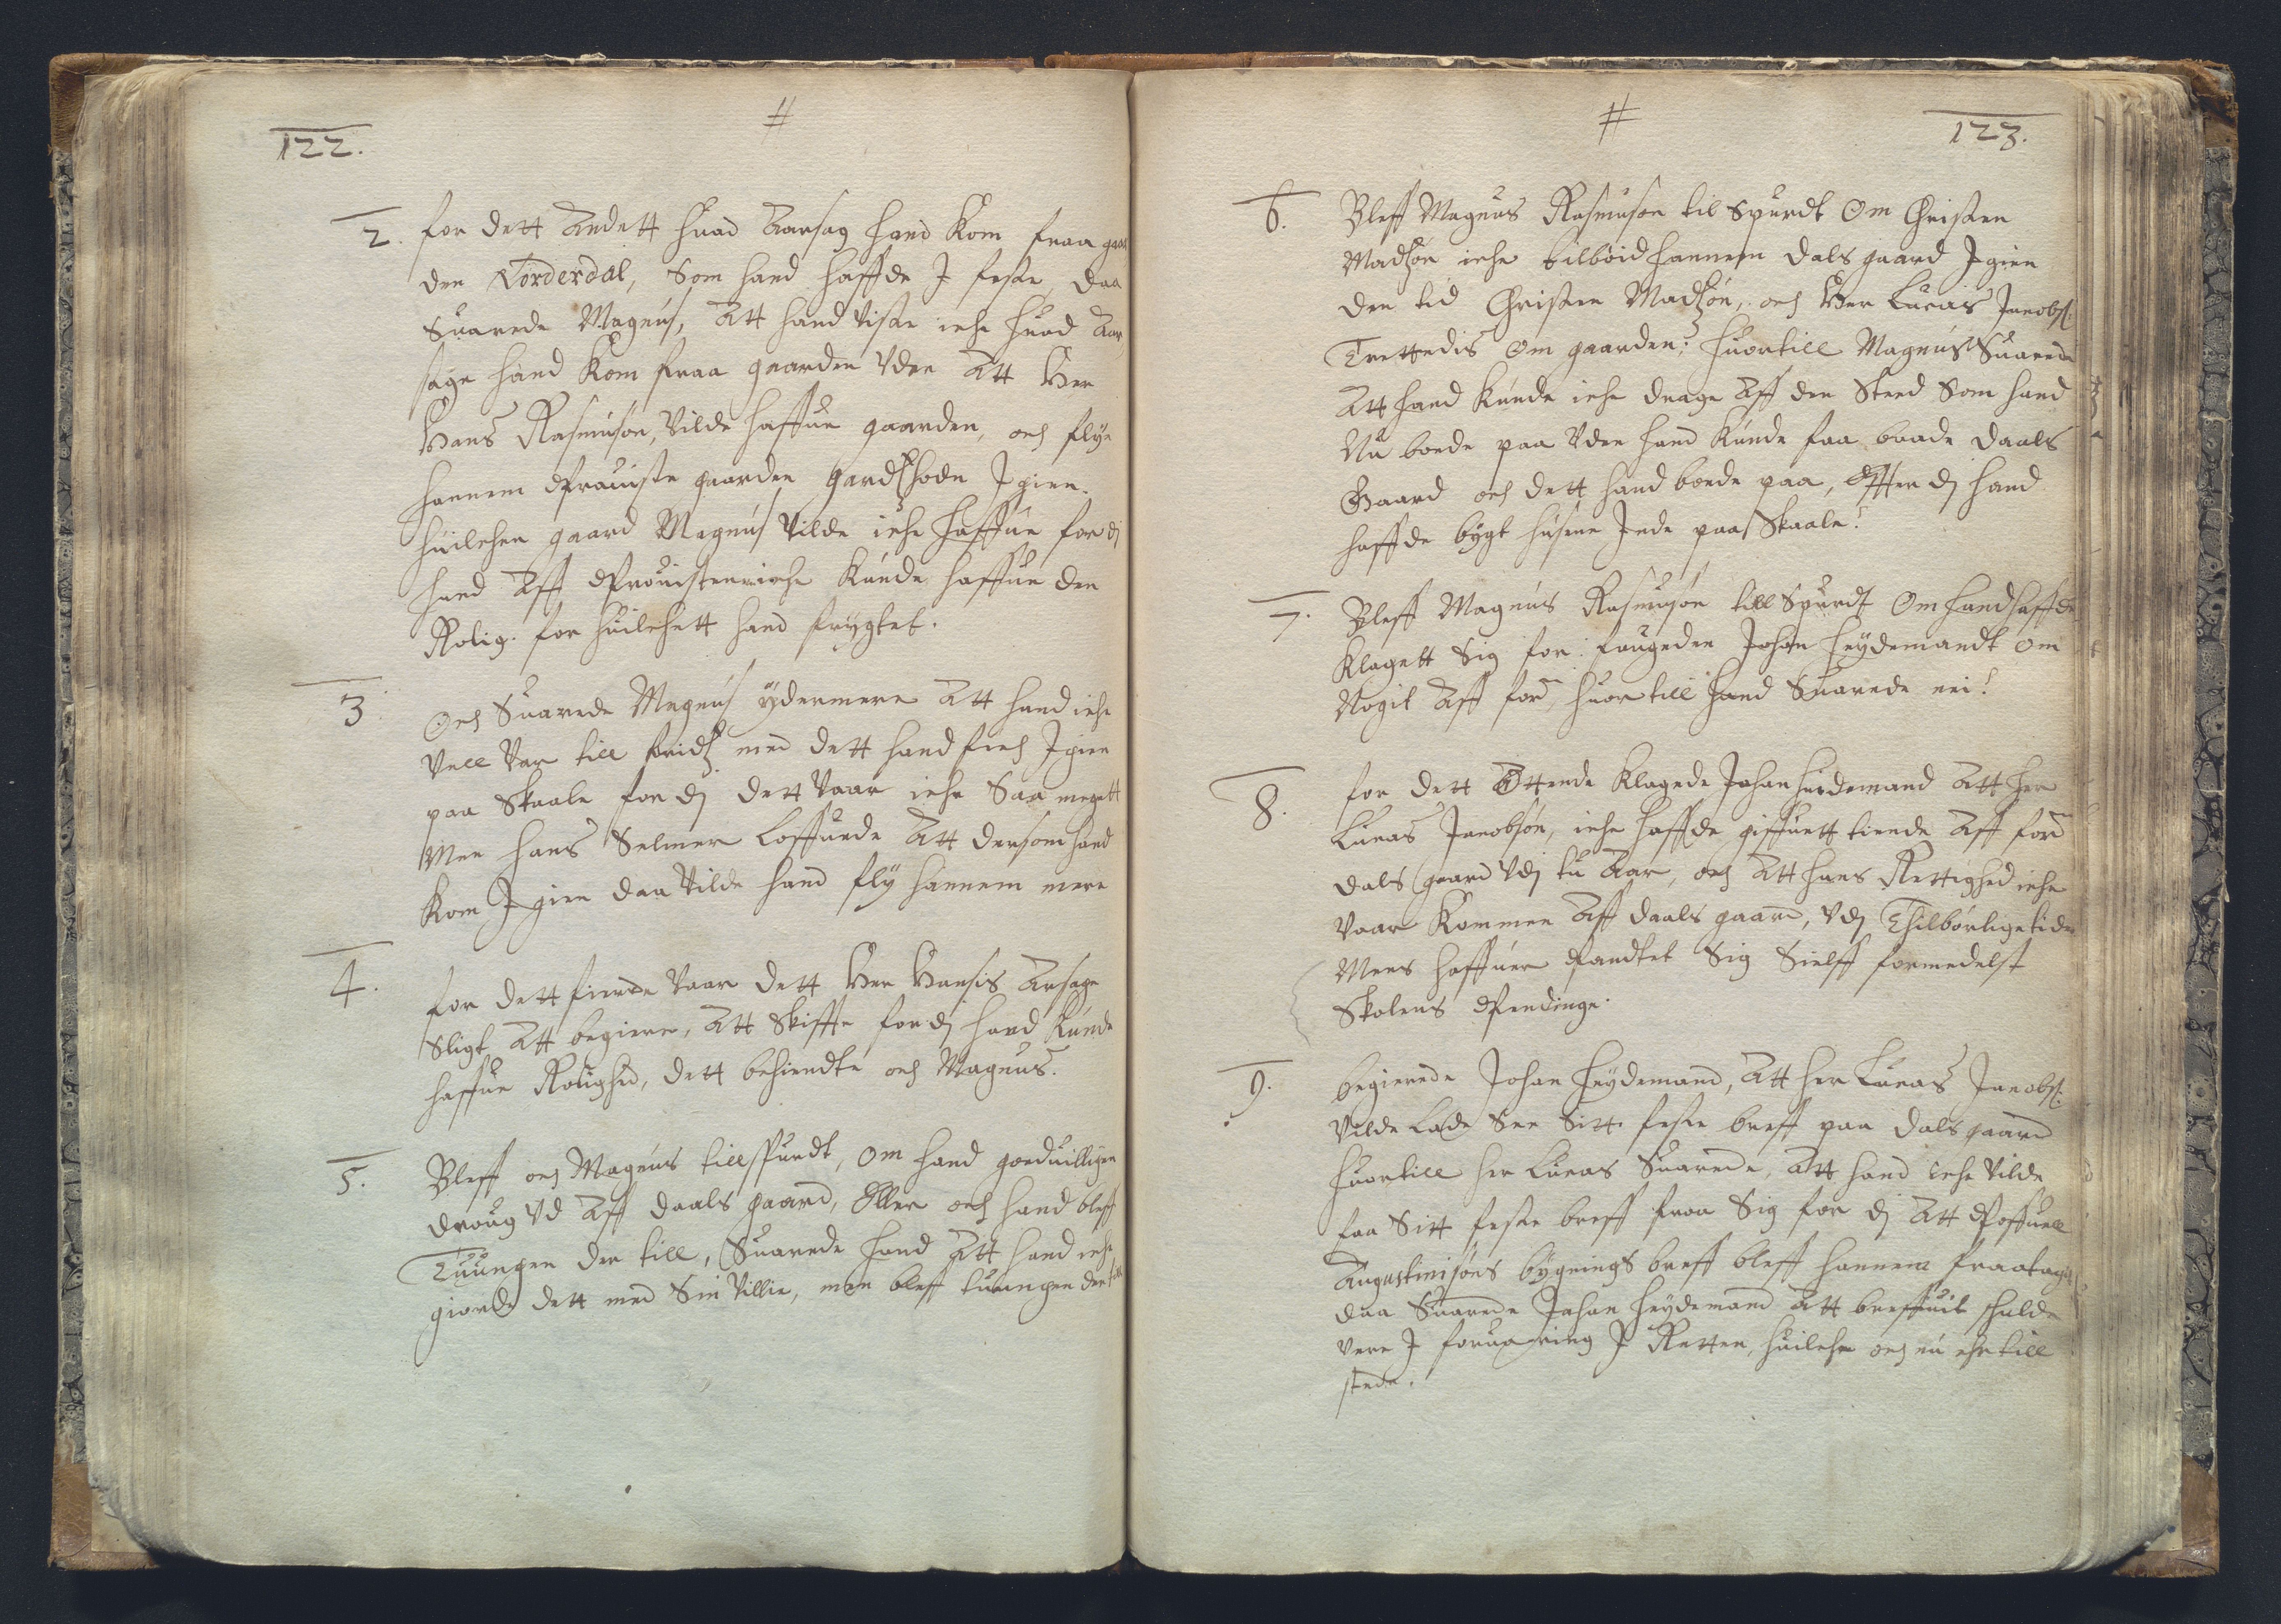 #
122.
2. for dett Andett huad Aarsag hand Kom fraa gaar
den Nörderdal, Som hand haffde J feste, daa
Suarede Magnus, Att hand viste iche huad Aar
sage hand Kom fraa gaarden Vden Att Her
Hans Rasmusøn, Vilde haffue gaarden, och flÿe
hannem Prouiste gaarden Igien.
huilchen gaard Magnus Vilde iche haffue for dj
hand Aff Prouisten iche Kunde haffue den
Rolig. for huilchett hand frÿgtet.
3 Och Suarede Magnus ÿdermere Att hand iche
Vell Var till fridtz med dett hand fich Igien
paa Skaale for dj dett Vaar iche Saa megett
Men hans Selmer Loffuede Att dersom hand
Kom J gien daa Vilde hand flÿ hannem mere
4. for dett fierde Vaar dett Her Hansis Arsage
Sligt Att begiere, Att Skiffte for dj hand Kunde
haffue Rolighed, dett bekiendte och Magnus.
5. Bleff och Magnus tillspurdt, Om hand goeduilligen
droug Vd Aff daals gaard, Eller och hand bleff
Tuungen der till, Suarede hand Att hand iche
giorde dett med Sin Villie, men bleff tuungen der till
#
123.
6. Bleff Magnus Rasmuson til Spurdt Om Christen
Madtzøn iche tilbøid hannem dals gaard Igien
den tid Christen Madtzøn, och Her Lucas Jacobs:
Trettedis Om gaarden; huortill Magnus Suarede
Att hand Kunde iche drage Aff den Sted Som hand
Nu boede paa Vden hand Kunde faa baade daals
Gaard och dett hand boede paa, Effter dj hand
haffde bÿgt husene Jnde paa Skaale!
7. Bleff Magnus Rasmusøn till Spurdt Om hand haffde
Klagett Sig for fougeden Johan heÿdemandt Om
Nogit Aff ford, huor till hand Suarede nei!
8. for dett Ottende Klagede Johan heidemand Att her
Lucas Jacobsøn, iche haffde giffuett tiende Aff ford
dals gaard Vdj tu Aar, och Att hans Rettighed iche
Vaar Kommen Aff daals gaard, Vdj Thilbørlige tider
Mens haffuer Pandtet Sig Sielff formedelst
Skolens Pendinge.
9. begierede Johan heÿdemand, Att her Lucas Jacobs:
Vilde Lade See Sitt feste breff paa dals gaard
huortill her Lucas Suarede, Att hand iche Vilde
faa Sitt feste breff fraa Sig for dj Att Poffuell
Augustinisøns bÿgnings breff bleff hannem fraatagit
daa Suarede Johan heÿdemand Att breffuit schulde
Vere J foruaring J Retten, huilche och nu ehr till
stede.